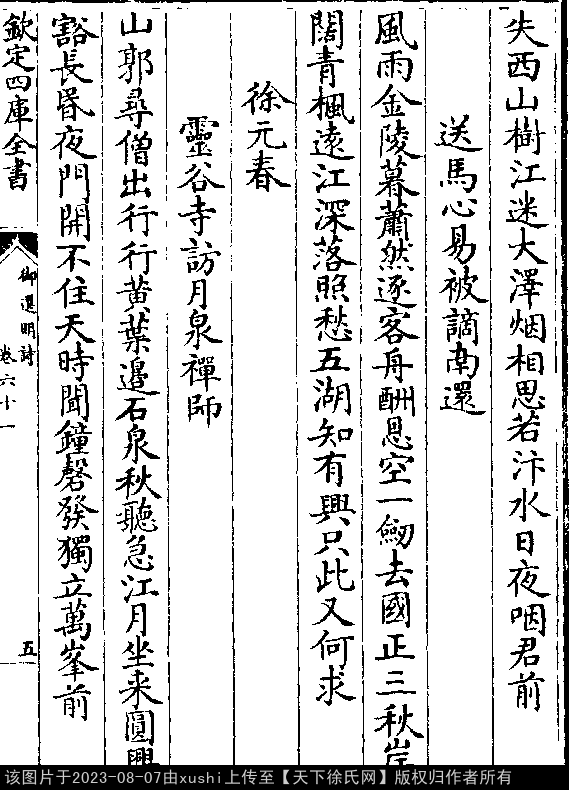 失西山樹江迷大澤烟相思若汴水日夜咽君前
送馬心易被謫南還
風雨金陵暮蕭然逐客舟酬恩空一劒去國正三秋岸
闊青楓遠江深落照愁五湖知有興只此又何求
徐元春
靈谷寺訪月泉禪師
山郭尋僧出行行黄葉邊石泉秋聽急江月坐来圓興
豁長眉夜門開不住天時聞鐘磬發獨立萬峯前
欽定四庫全書
御選明詩
卷六十一
五
该图片于2023-08-07由xushi上传至【天下徐氏网】版权归作者所有